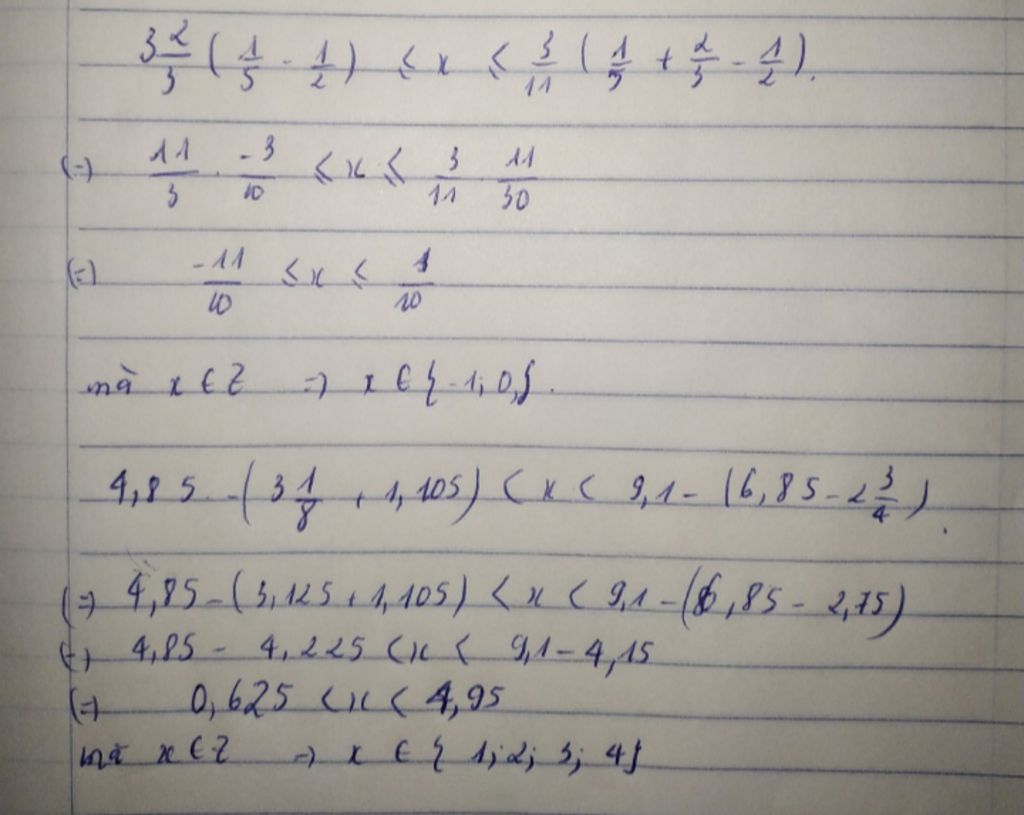 3 2/3 ( 1/5 - 1/2 ) ≤ x ≤ 3/11 ( 1/5 + 2/3 - 1/2 ).
(=) 11/3 . -3/10 ≤ x ≤ 3/11 . 11/30
(=) -11/10 ≤ x ≤ 1/10
mà x ∈ Z => x ∈ { -1; 0; }.
4,85 - ( 3 1/8 + 1,105 ) < x < 9,1 - ( 6,85 - 2 3/4 ).
(=) 4,85 - ( 3,125 + 1,105 ) < x < 9,1 - ( 6,85 - 2,75 )
(=) 4,85 - 4,225 < x < 9,1 - 4,15
(=) 0,625 < x < 4,95
mà x ∈ Z => x ∈ { 1; 2; 3; 4 }